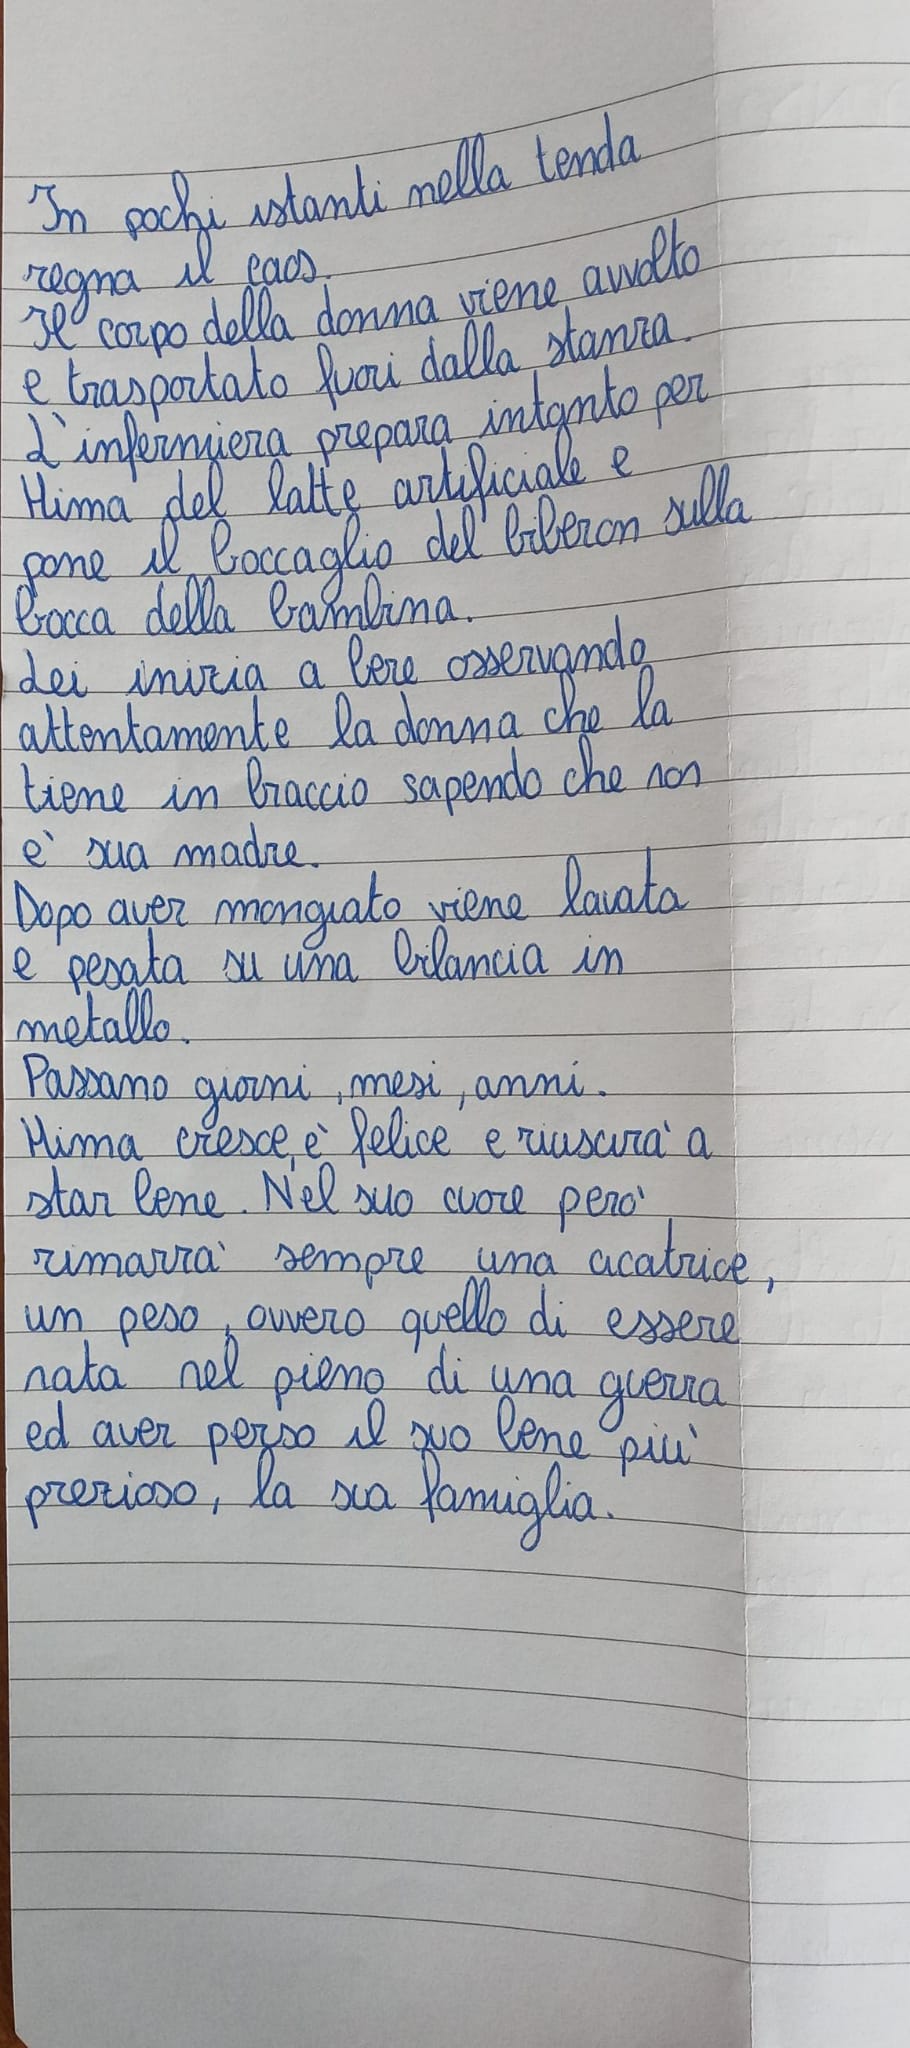 In pochi istanti nella tenda
regna il caos.
Il corpo della donna viene avvolto
e trasportato fuori dalla stanza.
L'infermiera prepara intanto per
Hima del latte artificiale e
pone il boccaglio del biberon sulla
bocca della bambina.
Lei inizia a bere osservando
attentamente la donna che la
tiene in braccio sapendo che non
è sua madre.
Dopo aver mangiato viene lavata
e pesata su una bilancia in
metallo.
Passano giorni, mesi, anni.
Hima cresce, è felice e riuscirà a
star bene. Nel suo cuore però
rimarrà sempre una cicatrice,
un peso, ovvero quello di essere
nata nel pieno di una guerra
ed aver perso il suo bene più
prezioso, la sua famiglia.